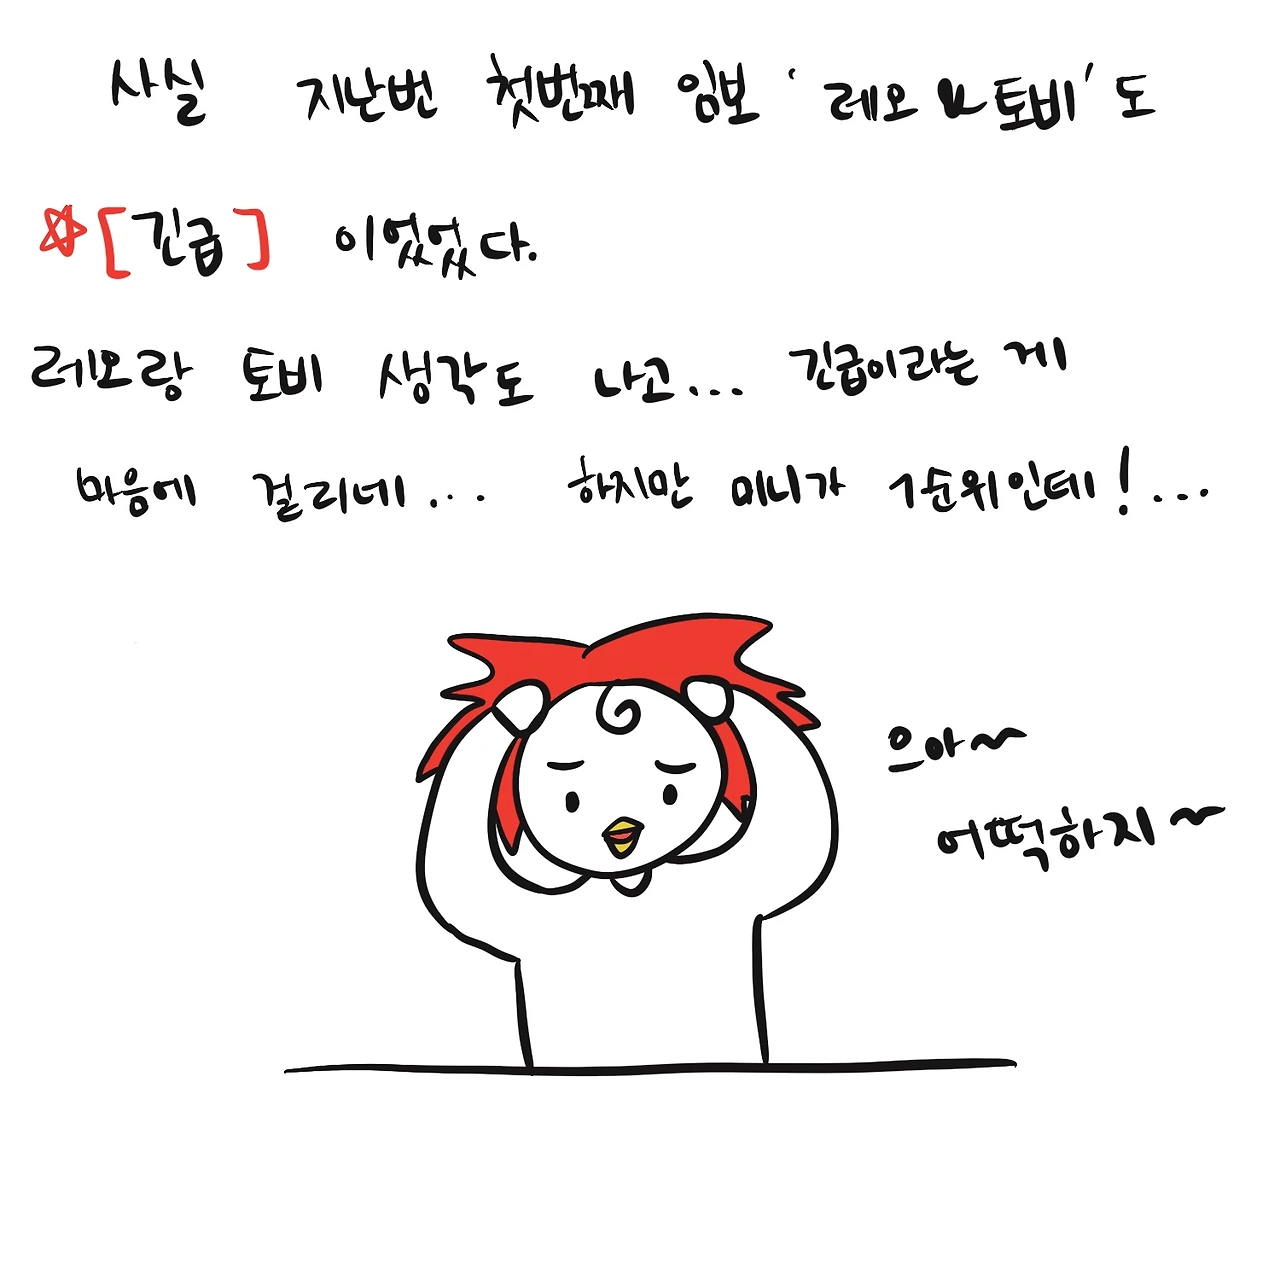 사실 지난번 첫번째 임보 '레오&토비'도
☆[긴급] 이었었다.
레오랑 토비 생각도 나고... 긴급이라는 게
마음에 걸리네... 하지만 미니가 1순위인데!...
으아~
어떡하지~